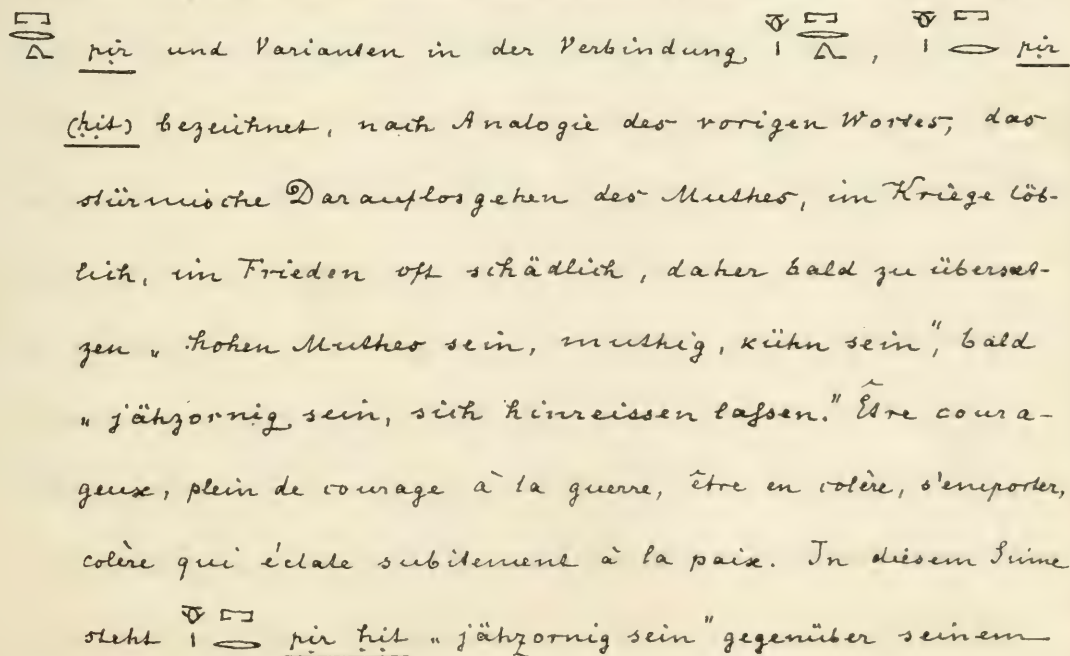 𓉐𓂋𓂻 pir und Varianten in der Verbindung 𓄣𓏤𓉐𓂋𓂻, 𓄣𓏤𓉐𓂋 pir
(ḥit) bezeichnet, nach Analogie des vorigen Wortes, das
stürmische Darauflosgehen des Muthes, im Kriege löb-
lich, im Frieden oft schädlich, daher bald zu überset-
zen „hohen Muthes sein, muthig, kühn sein", bald
„jähzornig sein, sich hinreissen laſsen." Être coura-
geux, plein de courage à la guerre, être en colère, s'emporter,
colère qui éclate subitement à la paix. In diesem Sinne
steht 𓄣𓏤𓉐𓂋 pir ḥit „jähzornig sein" gegenüber seinem